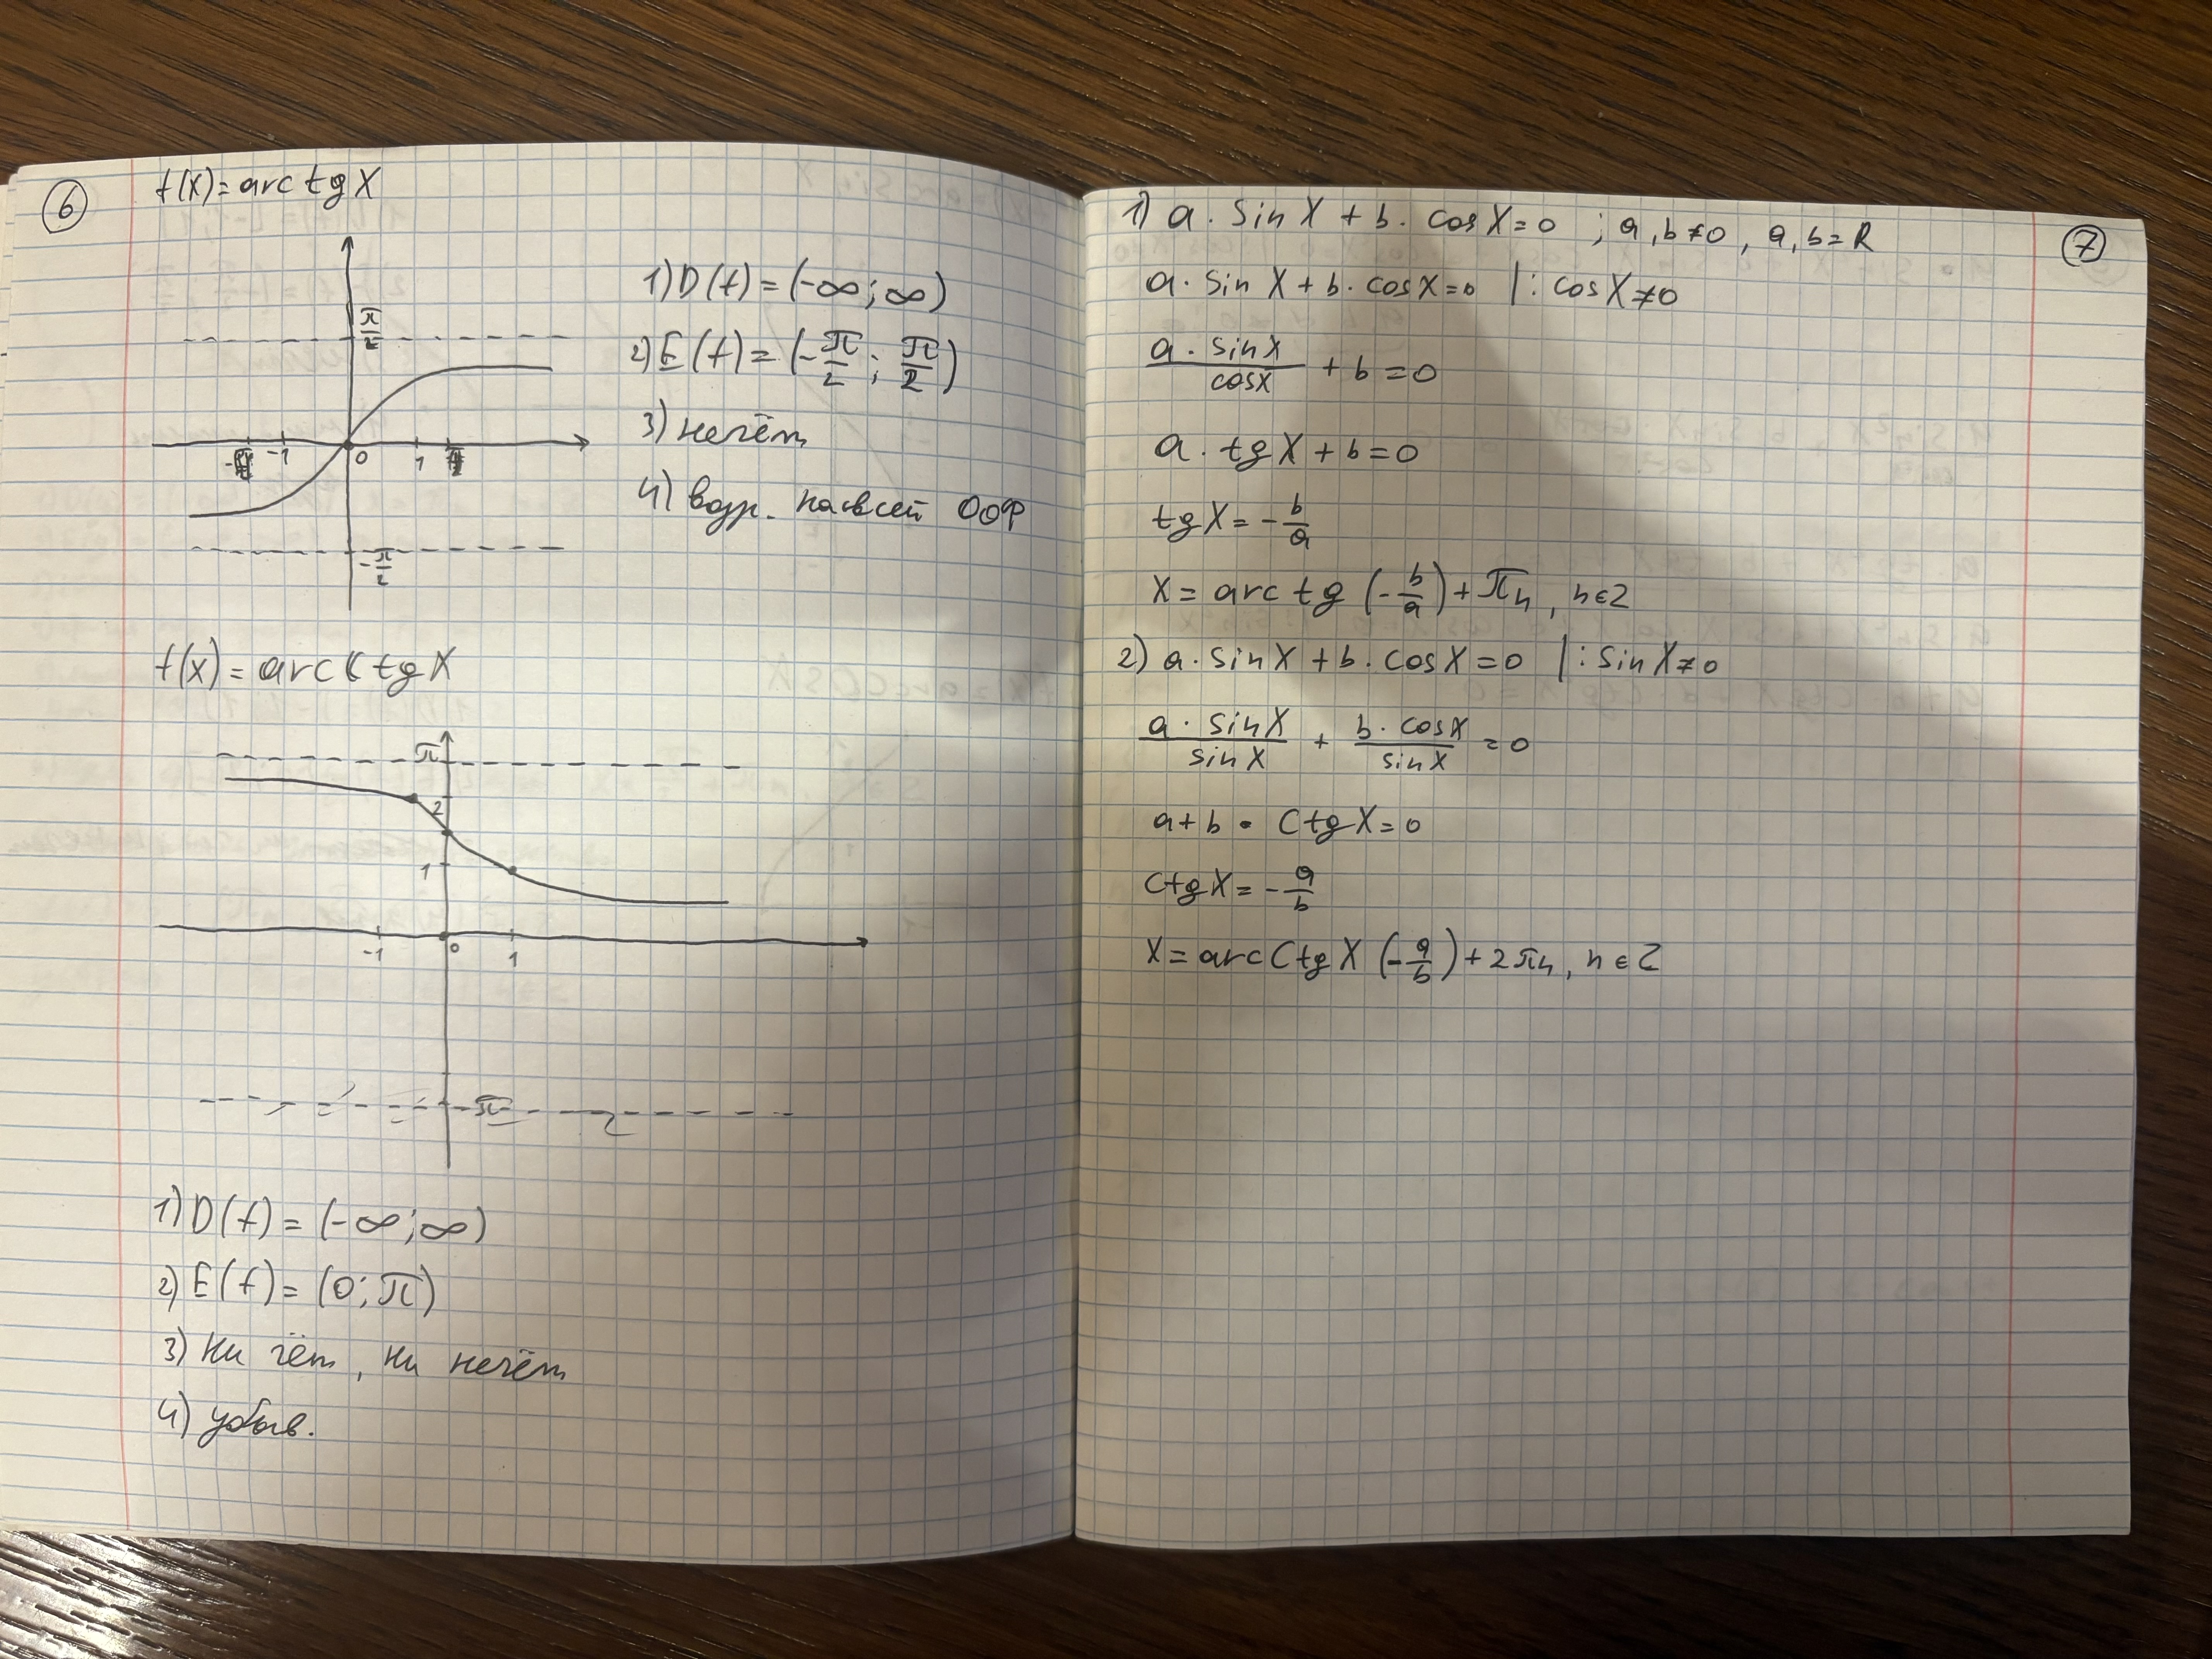 6
f(x) = arctgX
π/2
-1 0 1
-π/2
1) D(f) = (-∞; ∞)
2) E(f) = (-π/2; π/2)
3) нечёт
4) возр. на всей ООФ
f(x) = arcctgX
π
2
1
-1 0 1
-π
1) D(f) = (-∞; ∞)
2) E(f) = (0; π)
3) Ни чёт, ни нечёт
4) убыв.
7
1) a · sinX + b · cosX = 0 ; a, b ≠ 0, a, b = R
a · sinX + b · cosX = 0 | : cosX ≠ 0
a · sinX / cosX + b = 0
a · tgX + b = 0
tgX = -b/a
X = arctg(-b/a) + πn, n ∈ Z
2) a · sinX + b · cosX = 0 | : sinX ≠ 0
a · sinX / sinX + b · cosX / sinX = 0
a + b · ctgX = 0
ctgX = -a/b
X = arcctgX(-a/b) + 2πn, n ∈ Z